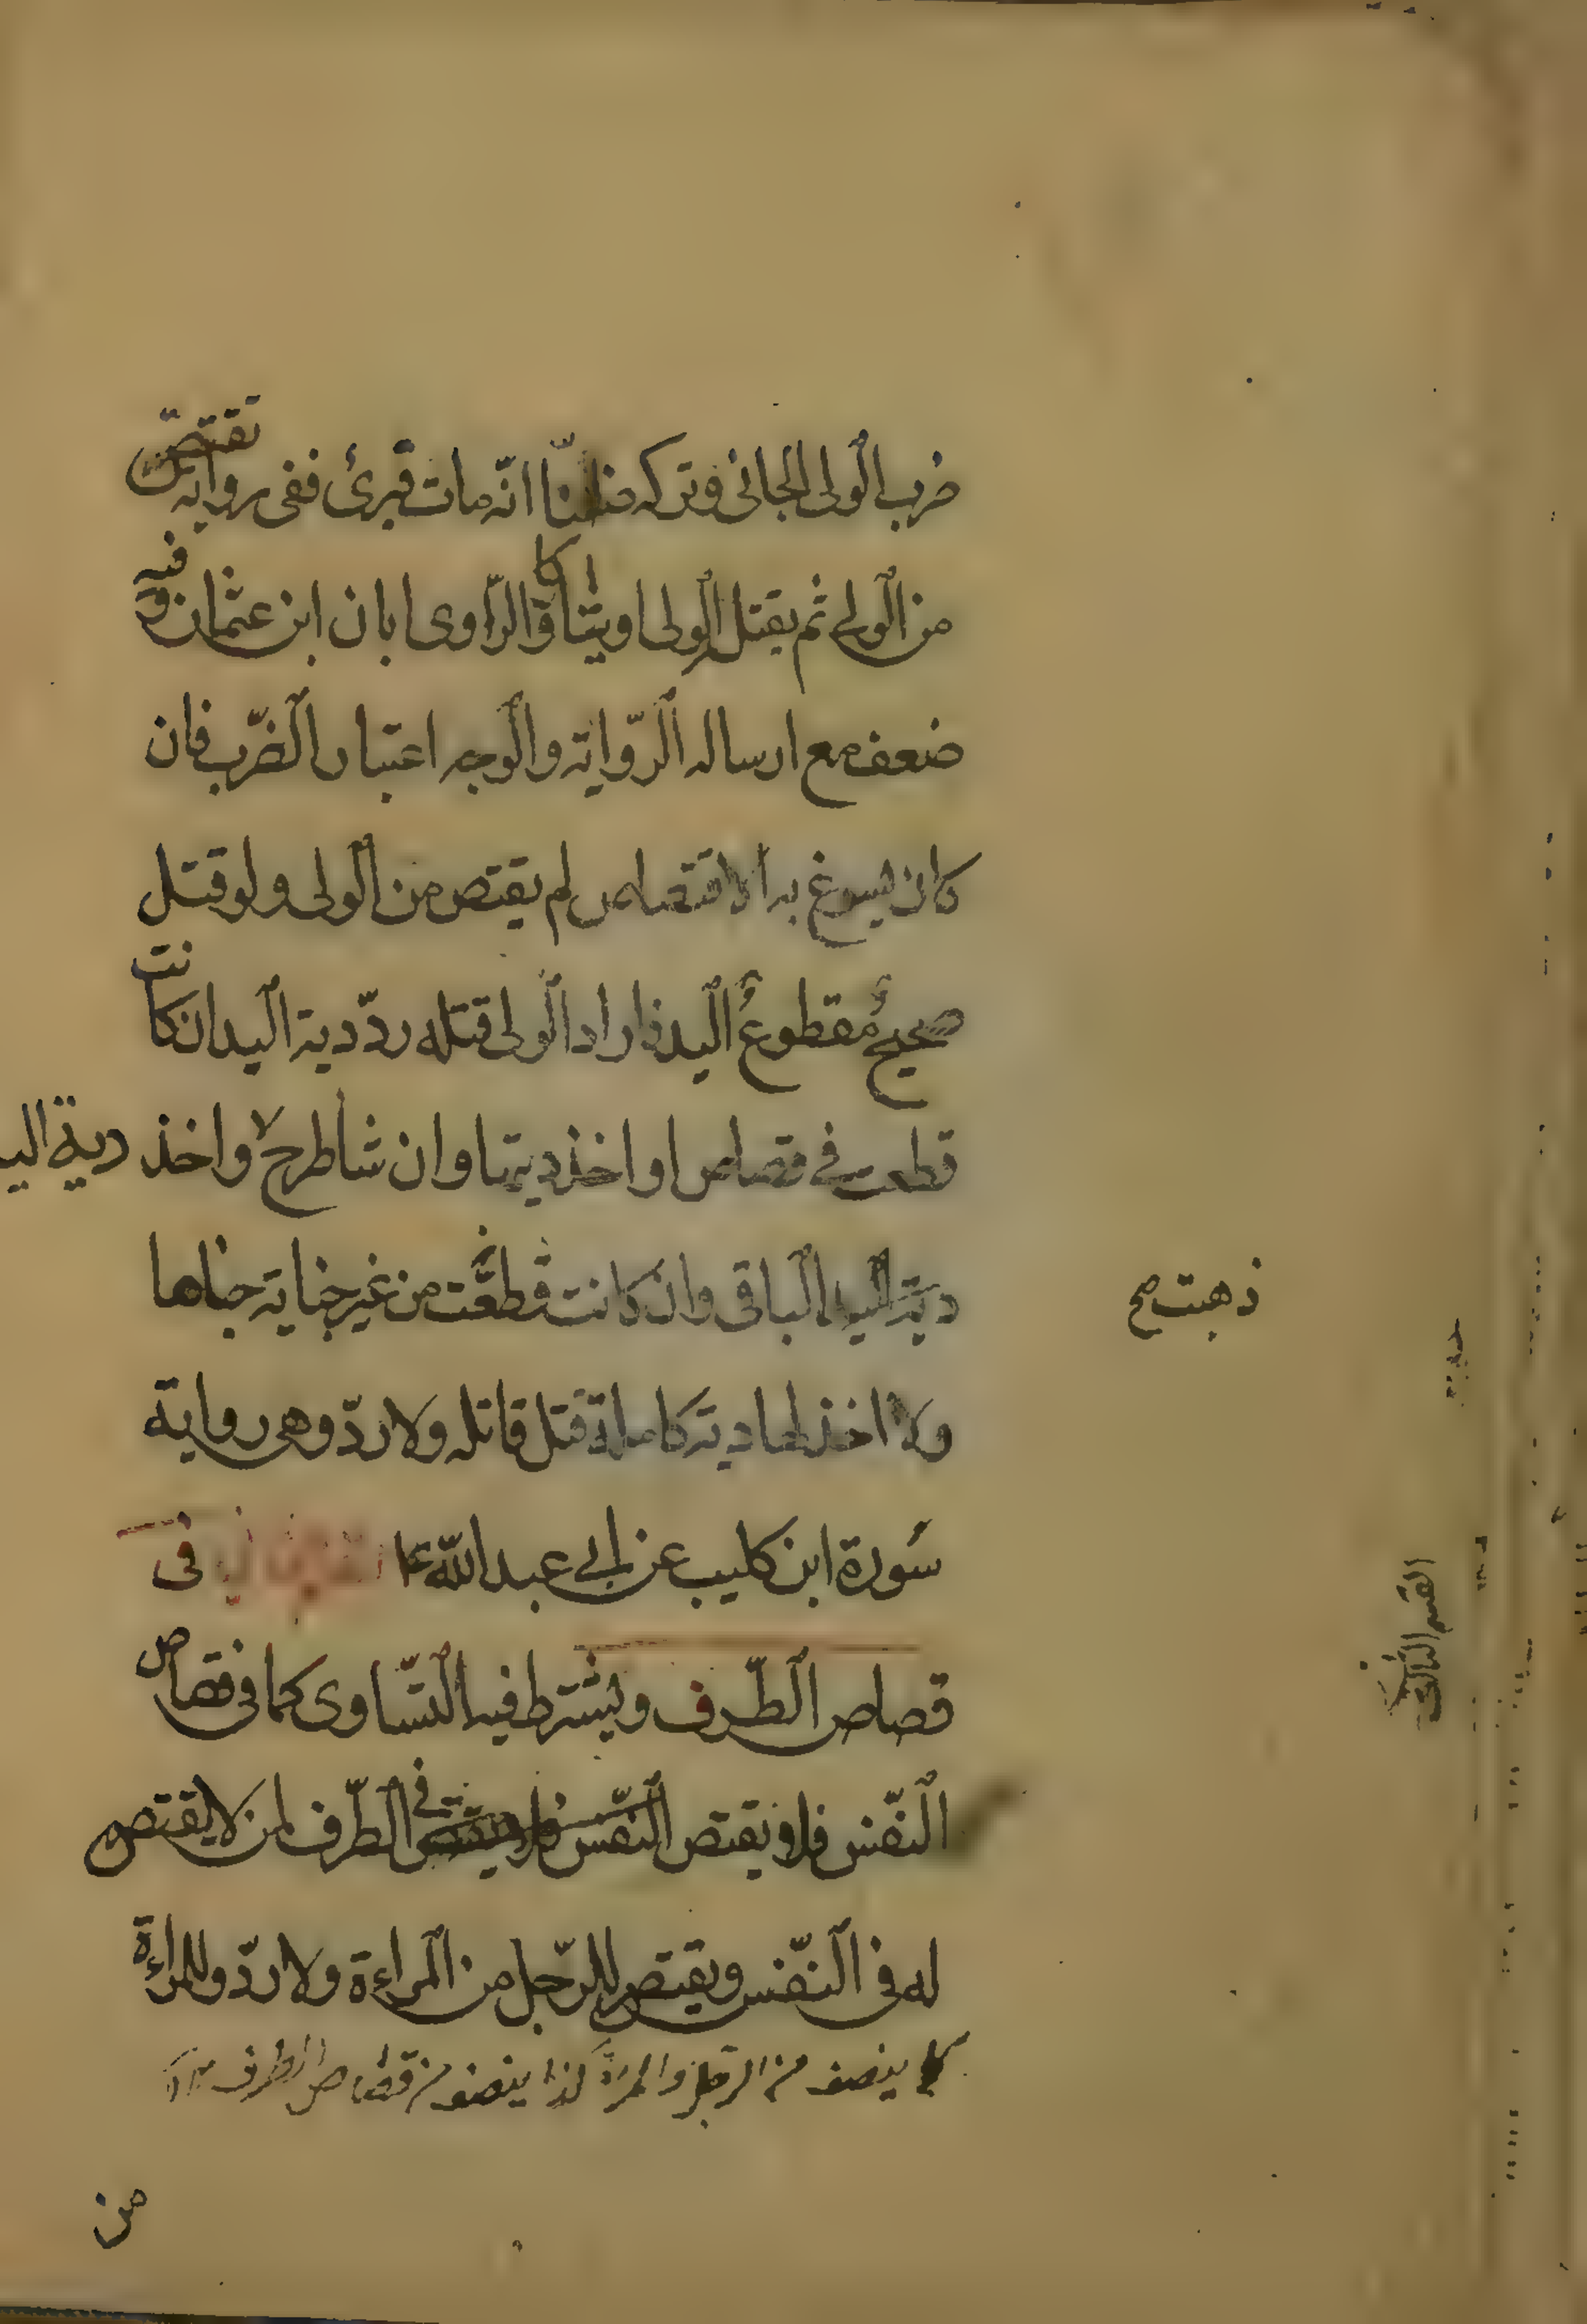 ضرب الولى الجانى وتركه ظنّا انّه مات فبرئ ففى رواية تقتصّ
من الولى ثم يقتل الولى او يتتاركا والرّاوى ابان ابن عثمان وفيه
ضعف مع ارساله الرّواية والوجه اعتبار الضّرب فان
كان يسوغ به الاقتصاص لم يقتص من الولى ولو قتل
صحيحٌ مقطوعُ اليد فاراد الولى قتله ردّ دية اليد ان كانت
قطعت فى قصاص او اخذ ديتها وان شا طرح واخذ دية اليد
دية الباقى وان كانت قطعت من غير جناية جناها
ولا اخذ لها دية كاملة قتل قاتله ولا ردّ وهى رواية
سورة ابن كليب عن ابى عبد الله ع فى
قصاص الطّرف ويشترط فيه التّساوى كما فى قصاص
النّفس فلا يقتص فى الطّرف لمن لا يقتص
له فى النّفس ويقتص للرّجل من المراءة ولا ردّ وللمراءة
ينصف من الرجل والمراة كذا ينصف من قصاص الطرف
من
ذهبت صح
القسم الثانى